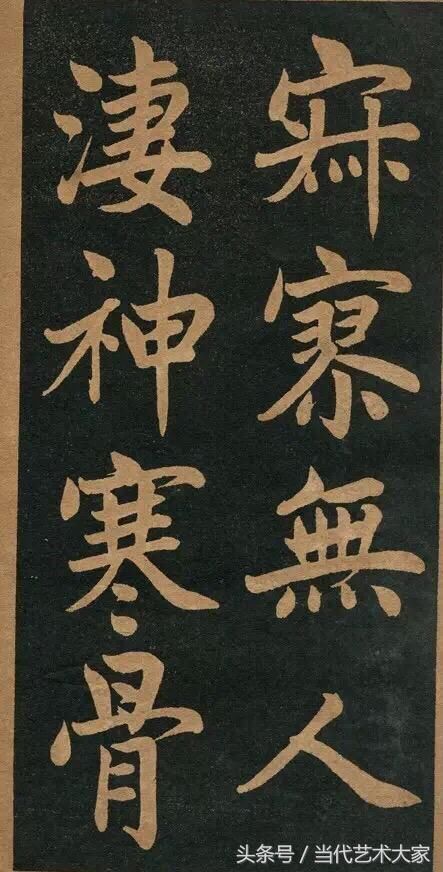 寂寥無人
淒神寒骨
头条号 / 当代艺术大家